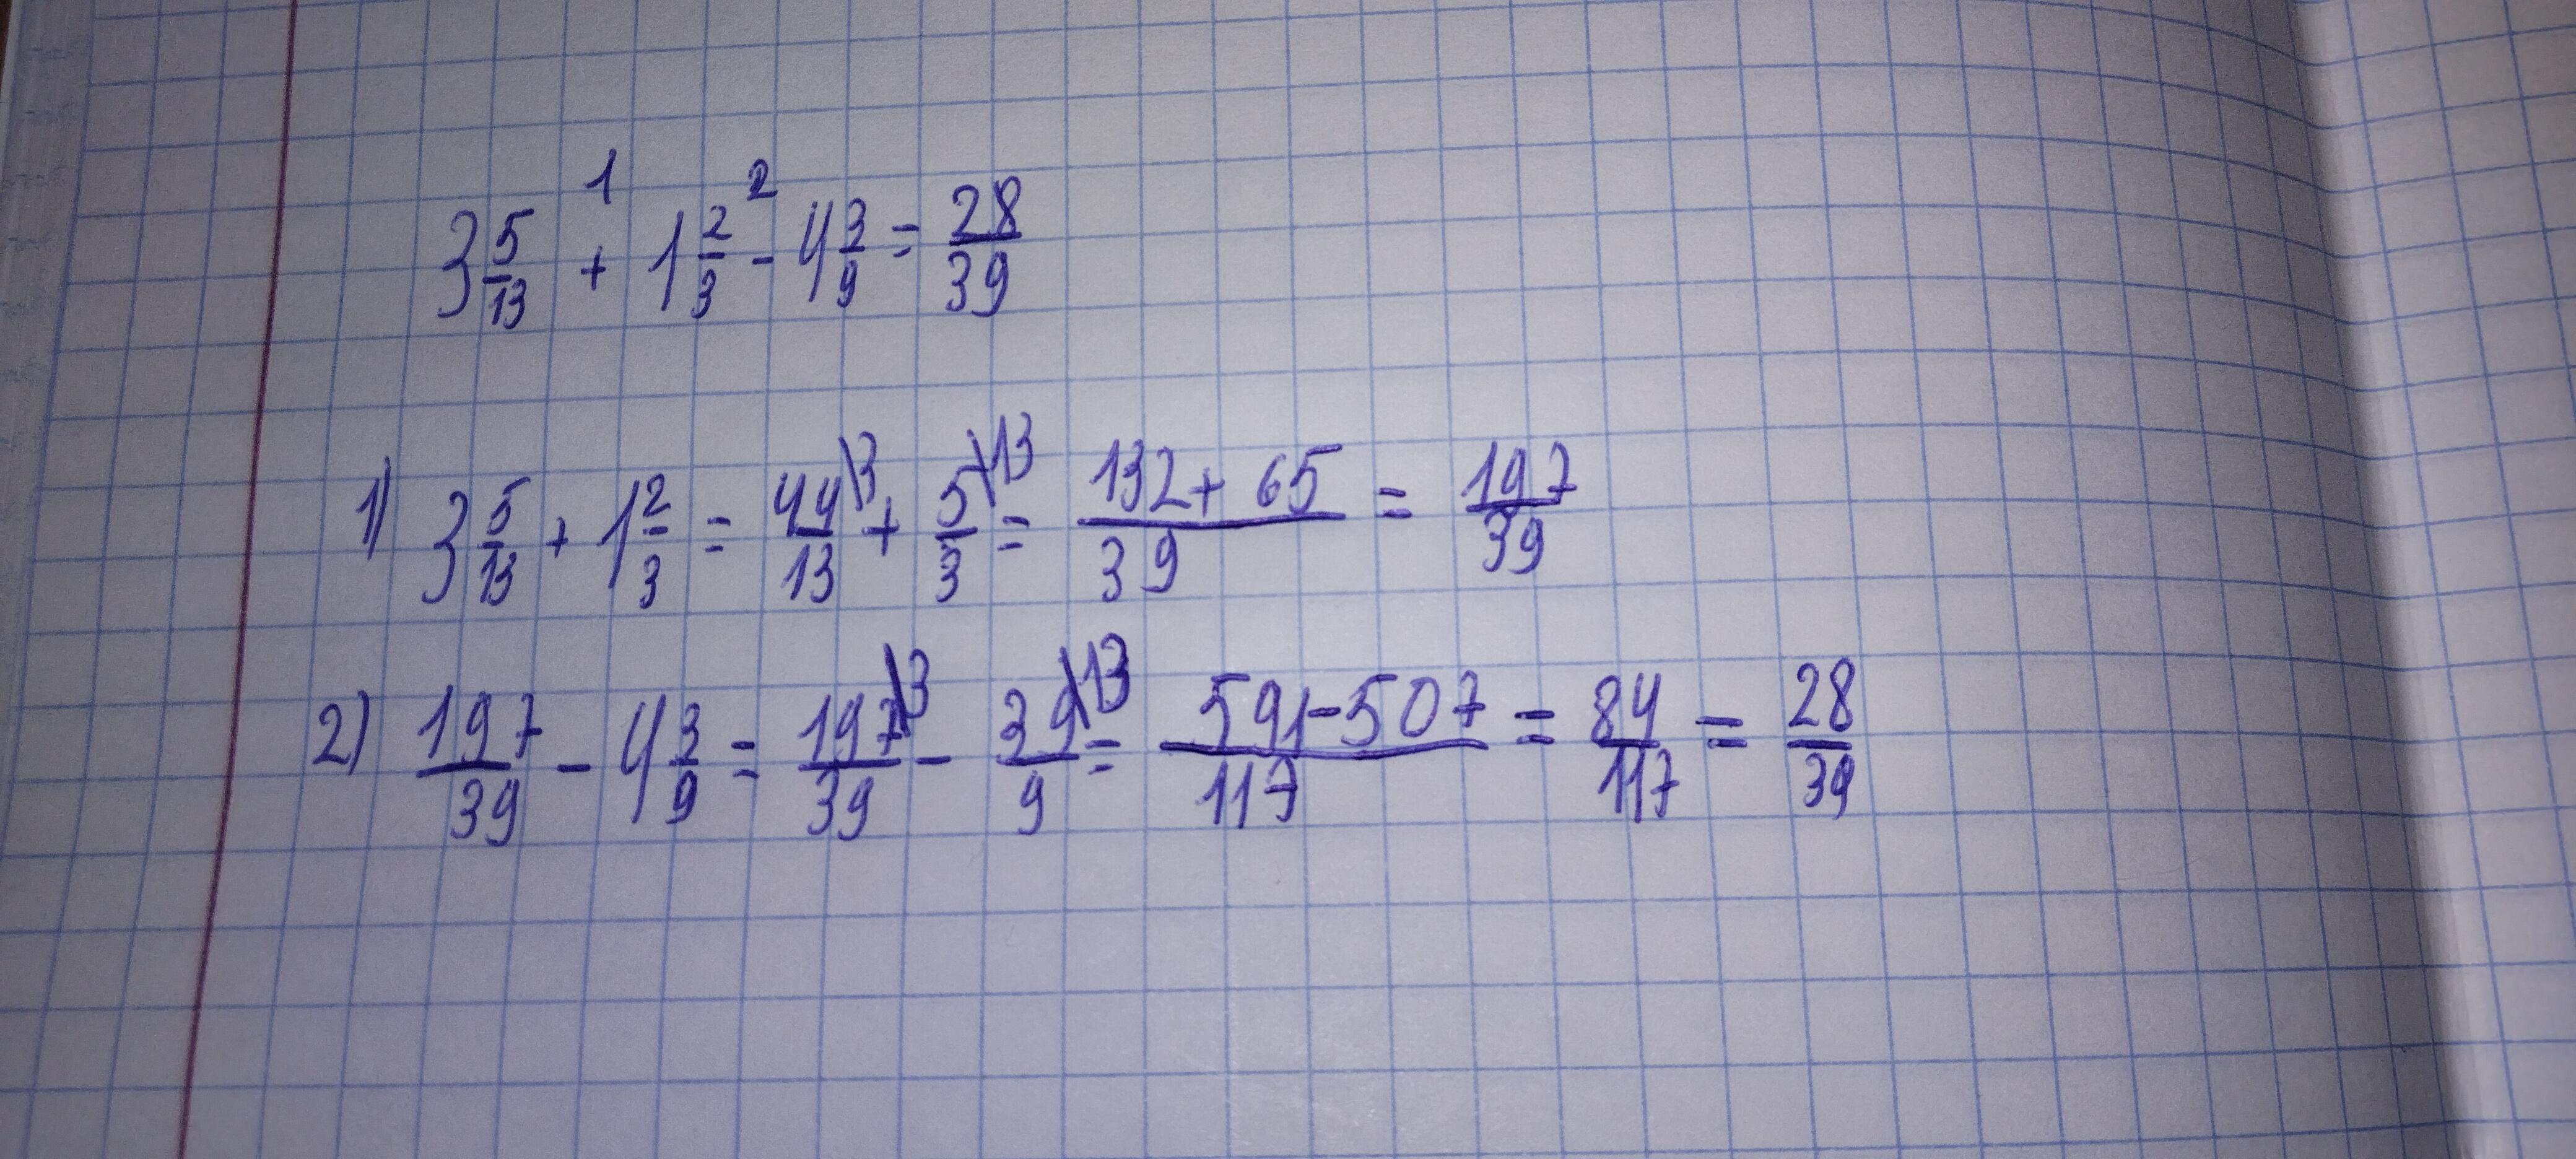 3 5/13 +¹ 1 2/3 -² 4 3/9 = 28/39
1) 3 5/13 + 1 2/3 = 44/13\3 + 5/3\13 = (132+65)/39 = 197/39
2) 197/39 - 4 3/9 = 197/39\3 - 39/9\13 = (591-507)/117 = 84/117 = 28/39